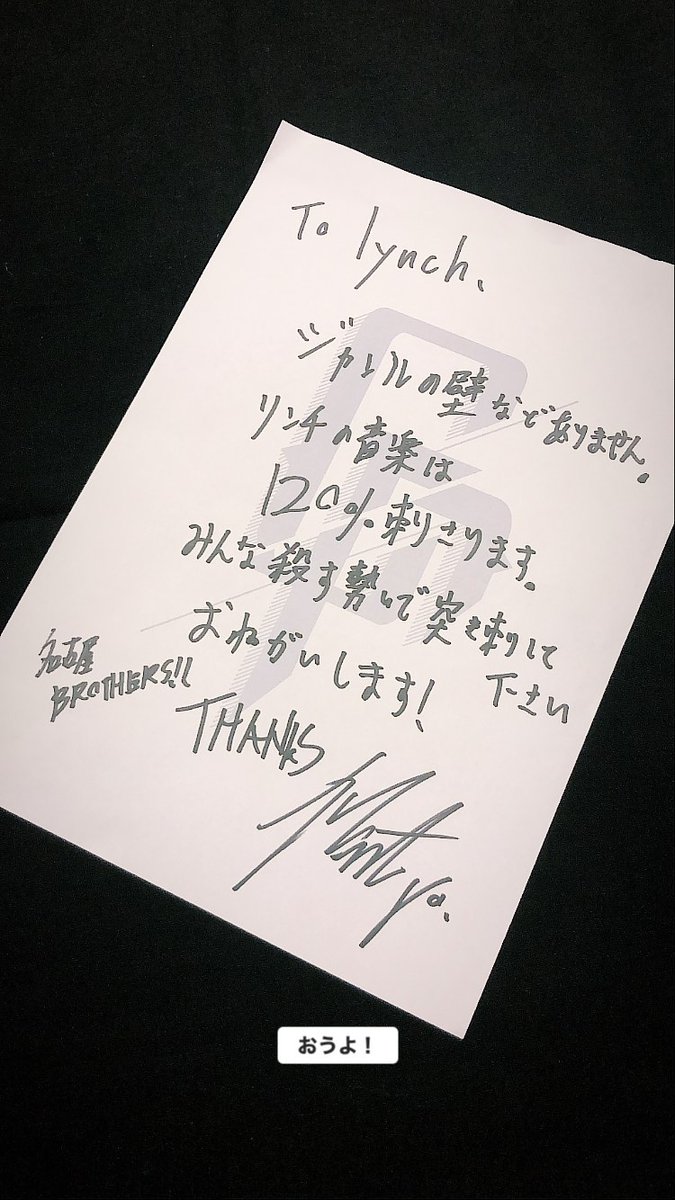 To lynch.
ジャンルの壁などありません。
リンチの音楽は
120%刺さります。
みんな殺す勢いで突き刺して
下さい
おねがいします!
名古屋
BROTHERS!!
THANKS
おうよ!